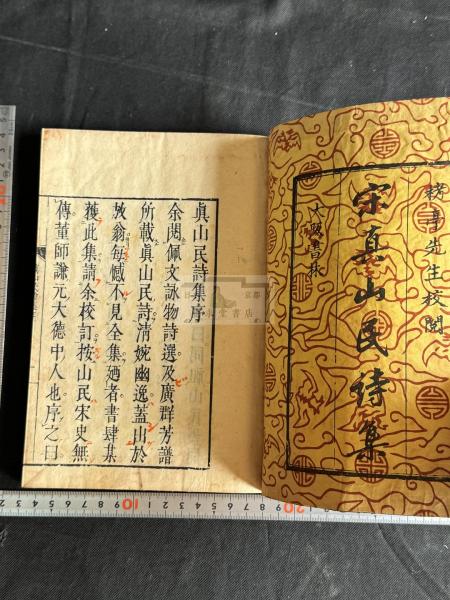 先生校閱
宋真山民詩集
大阪書林
眞山民詩集序
余閱佩文詠物詩選及廣群芳譜
所載眞山民詩清婉幽逸蓋出於
放翁每憾不見全集廼者書肆某
獲此集請余校訂按山民宋史無
傳董師謙元大德中人也序之曰